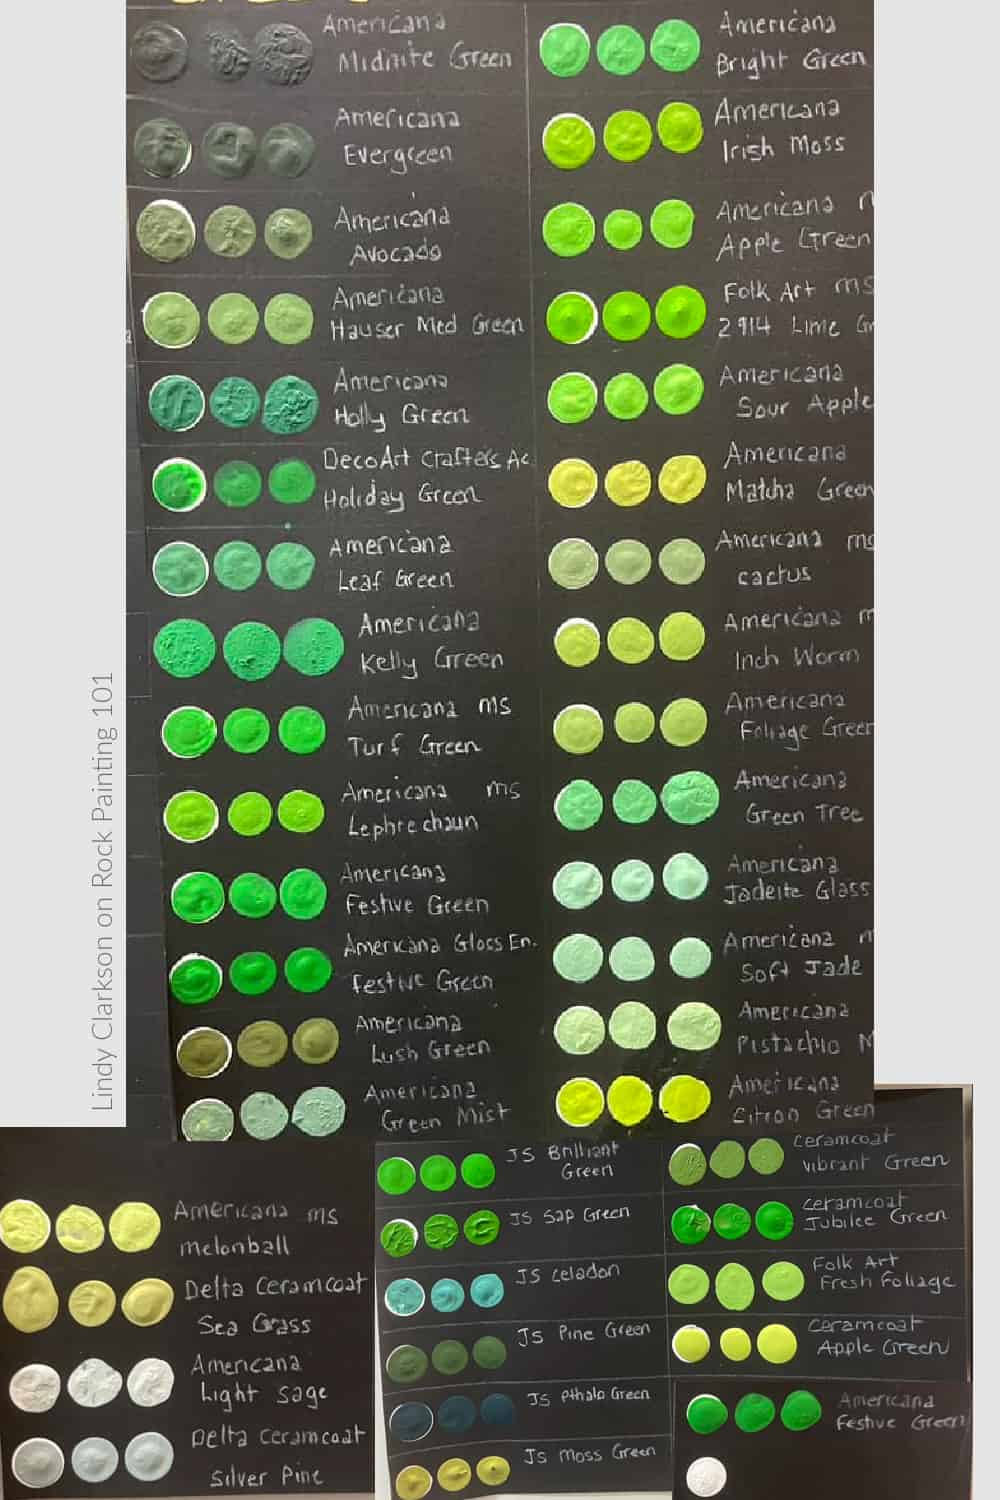 Americana
Midnite Green
Americana
Evergreen
Americana
Avocado
Americana
Hauser Med Green
Americana
Holly Green
DecoArt Crafters Ac
Holiday Green
Americana
Leaf Green
Americana
Kelly Green
Americana ms
Turf Green
Americana ms
Lephrechaun
Americana
Festive Green
Americana Gloss En.
Festive Green
Americana
Lush Green
Americana
Green Mist
Americana
Bright Green
Americana
Irish Moss
Americana
Apple Green
Folk Art ms
2914 Lime Gr
Americana
Sour Apple
Americana
Matcha Green
Americana ms
cactus
Americana
Inch Worm
Americana
Foliage Green
Americana
Green Tree
Americana
Jadeite Glass
Americana
Soft Jade
Americana
Pistachio M
Americana
Citron Green
Lindy Clarkson on Rock Painting 101
Americana ms
melonball
Delta Ceramcoat
Sea Grass
Americana
Light Sage
Delta Ceramcoat
Silver Pine
JS Brilliant
Green
JS Sap Green
JS Celadon
JS Pine Green
JS Pthalo Green
JS Moss Green
Ceramcoat
Vibrant Green
Ceramcoat
Jubilee Green
Folk Art
Fresh Foliage
Ceramcoat
Apple Green
Americana
Festive Green